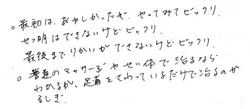 ○最初は、おやしかったが、やってみてビックリ
セツ明はできないけどビックリ、
最後までりかいができないけどビックリ、
○普通のマッサージやせい体で治るなら
わかるが、足裏をさわっているだけで治るのが
ふしぎ.